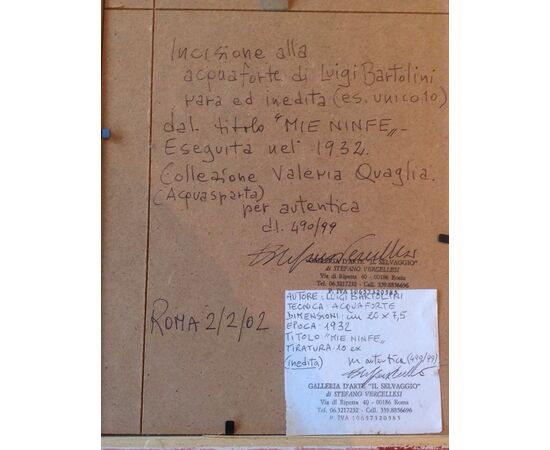 Incisione alla
acquaforte di Luigi Bartolini
rara ed inedita (es. unico 10)
dal titolo "MIE NINFE" -
Eseguita nel 1932.
Collezione Valeria Quaglia.
(Acquasparta)
per autentica
dl. 490/99
GALLERIA D'ARTE "IL SELVAGGIO"
di STEFANO VERCELLESI
Via di Ripetta 40 - 00186 Roma
Tel. 06.3217232 - Cell. 339.8836696
P. IVA 10657320585
ROMA 2/2/02
AUTORE: LUIGI BARTOLINI
TECNICA ACQUAFORTE
DIMENSIONI: cm 20 x 7,5
EPOCA 1932
TITOLO "MIE NINFE"
TIRATURA: 10 ex
(inedita) per autentica (490/99)
GALLERIA D'ARTE "IL SELVAGGIO"
di STEFANO VERCELLESI
Via di Ripetta 40 - 00186 Roma
Tel. 06.3217232 - Cell. 339.8836696
P. IVA 10657320585